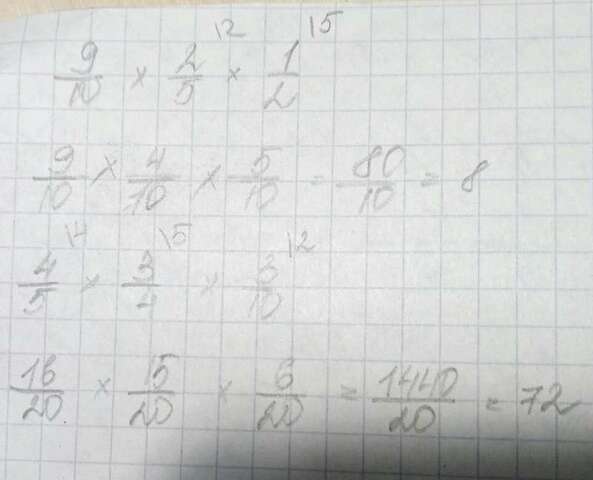 9/10 × 2/5 \2 × 1/2 \5
9/10 × 4/10 × 5/10 = 80/10 = 8
4/5 \4 × 3/4 \5 × 3/10 \2
16/20 × 15/20 × 6/20 = 1440/20 = 72